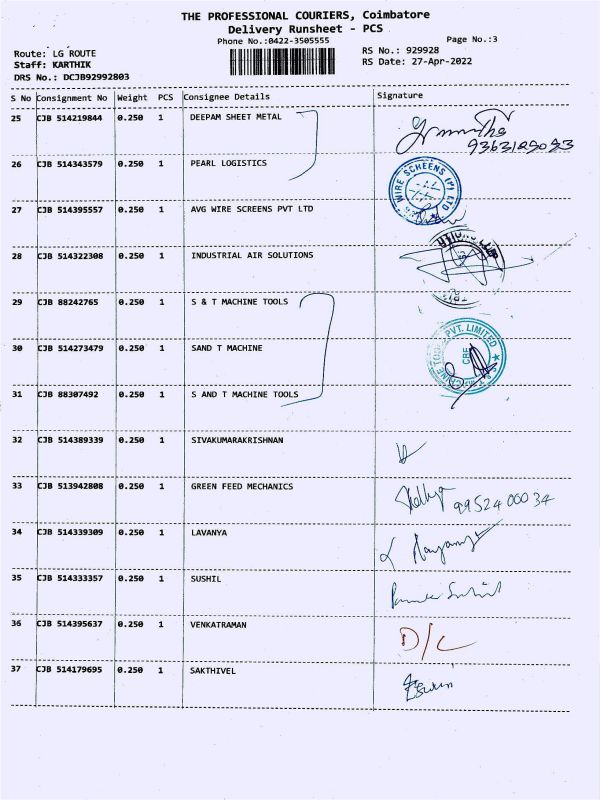 THE PROFESSIONAL COURIERS, Coimbatore
Delivery Runsheet - PCS
Phone No.:0422-3505555
Page No.:3
Route: LG ROUTE
RS No.: 929928
Staff: KARTHIK
RS Date: 27-Apr-2022
DRS No.: DCJB92992803
S No Consignment No Weight PCS Consignee Details Signature
25 CJB 514219844 0.250 1 DEEPAM SHEET METAL
26 CJB 514343579 0.250 1 PEARL LOGISTICS
WIRE SCREENS (P) LTD
27 CJB 514395557 0.250 1 AVG WIRE SCREENS PVT LTD
28 CJB 514322308 0.250 1 INDUSTRIAL AIR SOLUTIONS
29 CJB 88242765 0.250 1 S & T MACHINE TOOLS
PVT. LIMITED
30 CJB 514273479 0.250 1 SAND T MACHINE
CBE
31 CJB 88307492 0.250 1 S AND T MACHINE TOOLS
32 CJB 514389339 0.250 1 SIVAKUMARAKRISHNAN
33 CJB 513942808 0.250 1 GREEN FEED MECHANICS
99524 00034
34 CJB 514339309 0.250 1 LAVANYA
35 CJB 514333357 0.250 1 SUSHIL
36 CJB 514395637 0.250 1 VENKATRAMAN D/L
37 CJB 514179695 0.250 1 SAKTHIVEL